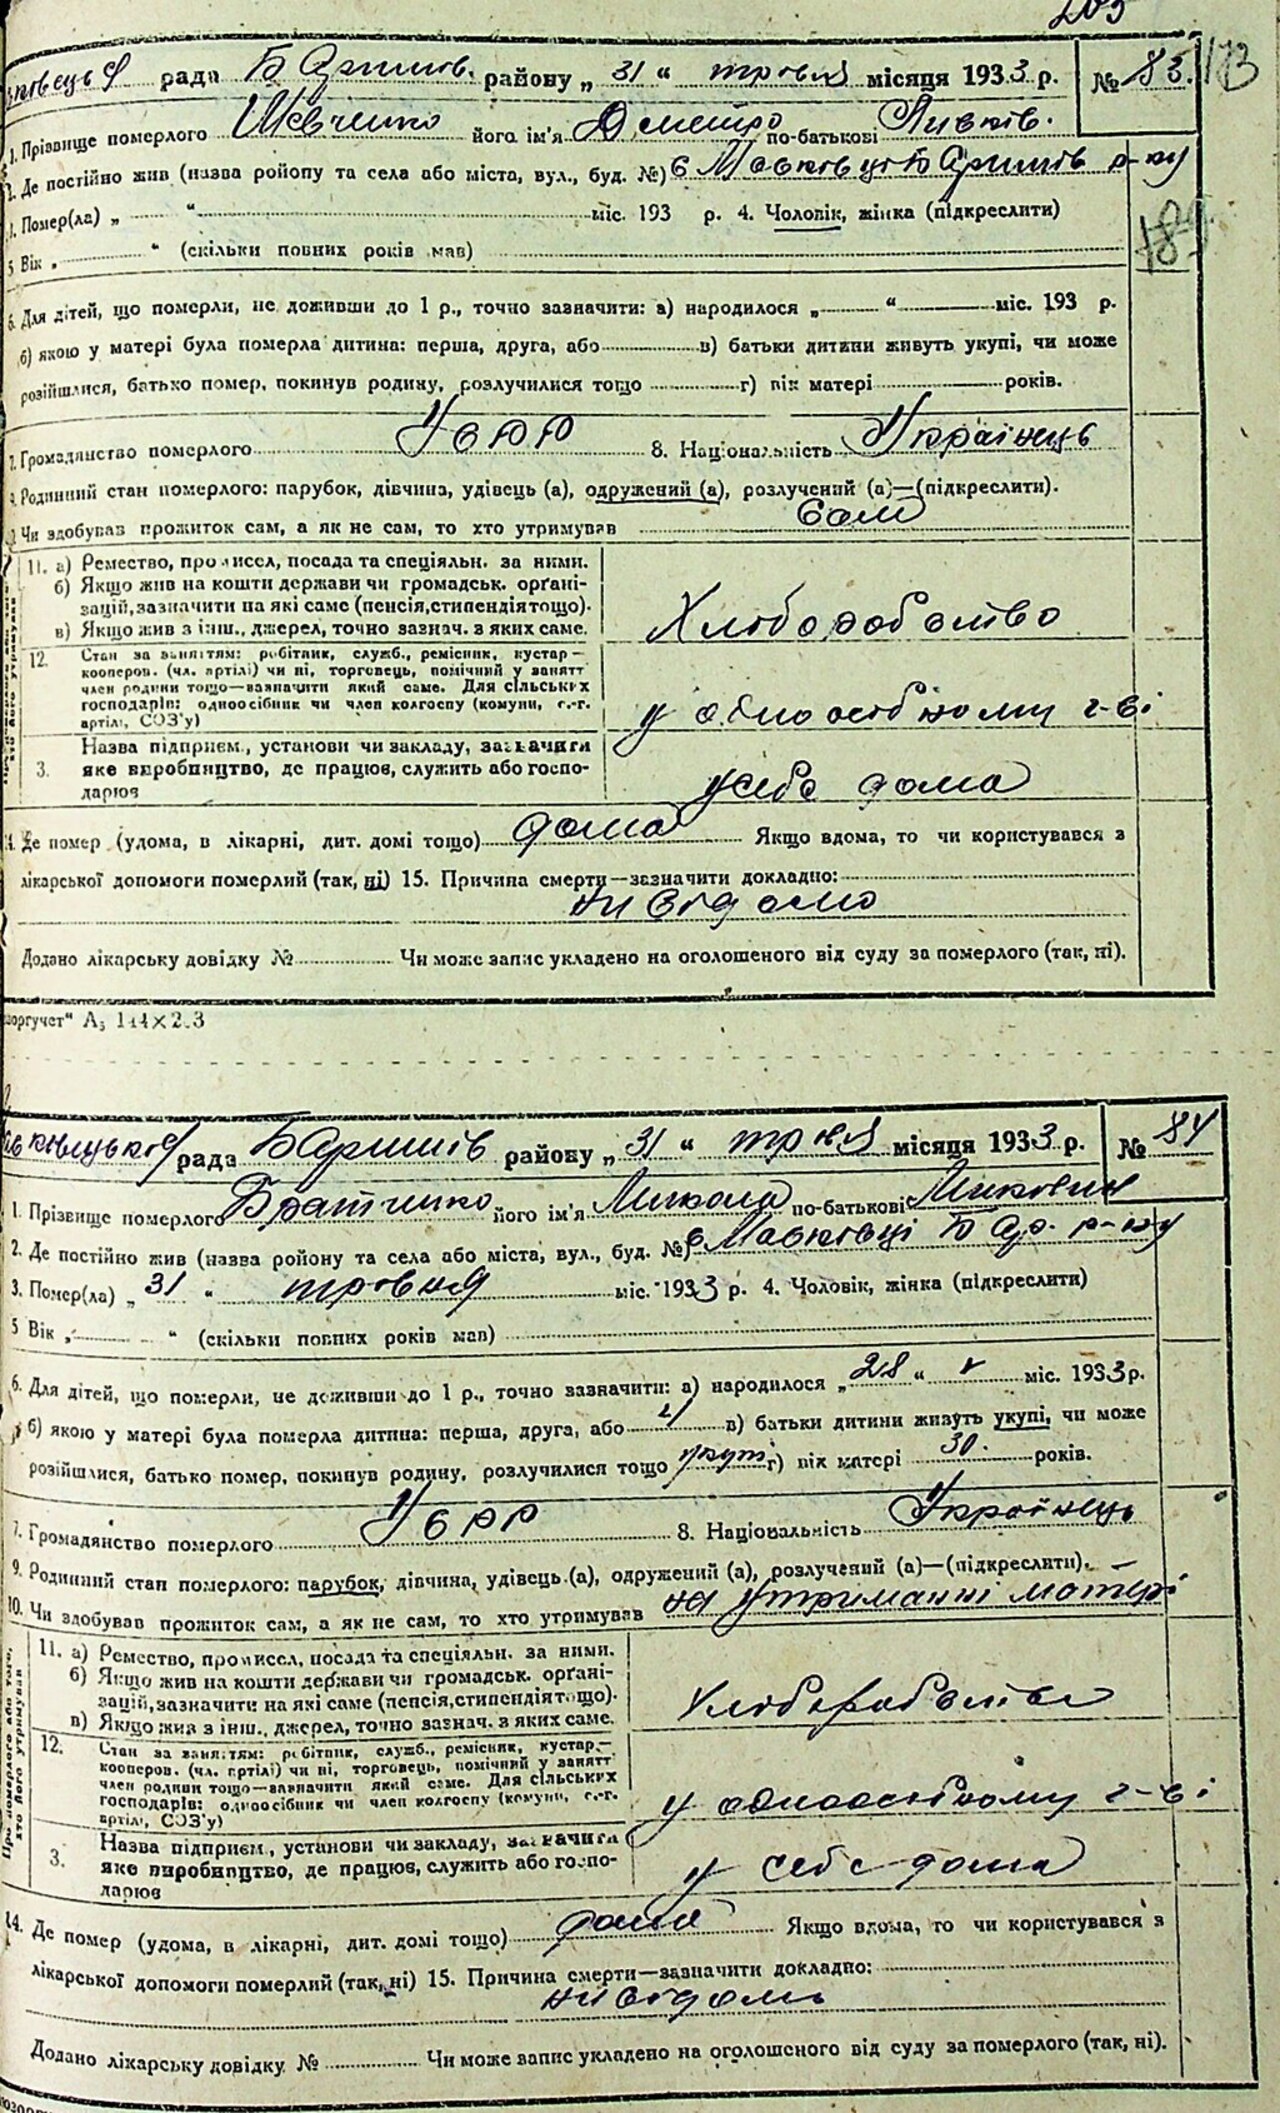 205
рада Баришів. району „31“ травня місяця 1933 р. № 83. 173
1. Прізвище померлого Шевченко його ім'я Дметро по-батькові
2. Де постійно жив (назва ройону та села або міста, вул., буд. №) с Масківці Баришів р-ну
3. Помер(ла) „ “ міс. 193 р. 4. Чоловік, жінка (підкреслити)
5 Вік „ “ (скільки повних років мав)
6. Для дітей, що померли, не доживши до 1 р., точно зазначити: а) народилося „ “ міс. 193 р.
б) якою у матері була померла дитина: перша, друга, або в) батьки дитини живуть укупі, чи може
розійшлися, батько помер, покинув родину, розлучилися тощо г) вік матері років.
7. Громадянство померлого УСРР 8. Національність Українець
9. Родинний стан померлого: парубок, дівчина, удівець (а), одружений (а), розлучений (а)—(підкреслити).
10. Чи здобував прожиток сам, а як не сам, то хто утримував Сам
11. а) Ремество, промисел, посада та спеціяльн. за ними.
б) Якщо жив на кошти держави чи громадськ. орґані-
зацій, зазначити на які саме (пенсія, стипендія тощо).
в) Якщо жив з інш., джерел, точно зазнач. з яких саме.
Хлоборобство
12. Стан за заняттям: робітник, служб., ремісник, кустар—
кооперов. (чл. артілі) чи ні, торговець, помічний у занятт
член родини тощо—зазначити який саме. Для сільських
господарів: одноосібник чи член колгоспу (комуни, с.-г.
артілі, СОЗ'у)
у одноосібному г-ві
3. Назва підприєм., установи чи закладу, зазначити
яке виробництво, де працюв, служить або госпо-
дарюв
у себе дома
14. Де помер (удома, в лікарні, дит. домі тощо) дома Якщо вдома, то чи користувався з
лікарської допомоги померлий (так, ні) 15. Причина смерти—зазначити докладно:
ни відомо
Додано лікарську довідку № Чи може запис укладено на оголошеного від суду за померлого (так, ні).
113×2.3
рада Баришів району „31“ травня місяця 1933 р. № 84
1. Прізвище померлого Братченко його ім'я Микола по-батькові
2. Де постійно жив (назва ройону та села або міста, вул., буд. №) с Масківці Бар. р-ну
3. Помер(ла) „31“ травня міс. 1933 р. 4. Чоловік, жінка (підкреслити)
5 Вік „ “ (скільки повних років мав)
6. Для дітей, що померли, не доживши до 1 р., точно зазначити: а) народилося „28“ міс. 1933 р.
б) якою у матері була померла дитина: перша, друга, або в) батьки дитини живуть укупі, чи може
розійшлися, батько помер, покинув родину, розлучилися тощо г) вік матері 30. років.
7. Громадянство померлого УСРР 8. Національність Українець
9. Родинний стан померлого: парубок, дівчина, удівець (а), одружений (а), розлучений (а)—(підкреслити).
10. Чи здобував прожиток сам, а як не сам, то хто утримував на утриманні матері
11. а) Ремество, промисел, посада та спеціяльн. за ними.
б) Якщо жив на кошти держави чи громадськ. орґані-
зацій, зазначити на які саме (пенсія, стипендія тощо).
в) Якщо жив з інш., джерел, точно зазнач. з яких саме.
Хлоборобство
12. Стан за заняттям: робітник, служб., ремісник, кустар—
кооперов. (чл. артілі) чи ні, торговець, помічний у занятт
член родини тощо—зазначити який саме. Для сільських
господарів: одноосібник чи член колгоспу (комуни, с.-г.
артілі, СОЗ'у)
у одноосібному г-ві
Про померлого або того, хто його утримував
3. Назва підприєм., установи чи закладу, зазначити
яке виробництво, де працюв, служить або госпо-
дарюв
у себе дома
14. Де помер (удома, в лікарні, дит. домі тощо) дома Якщо вдома, то чи користувався з
лікарської допомоги померлий (так, ні) 15. Причина смерти—зазначити докладно:
ни відомо
Додано лікарську довідку № Чи може запис укладено на оголошеного від суду за померлого (так, ні).